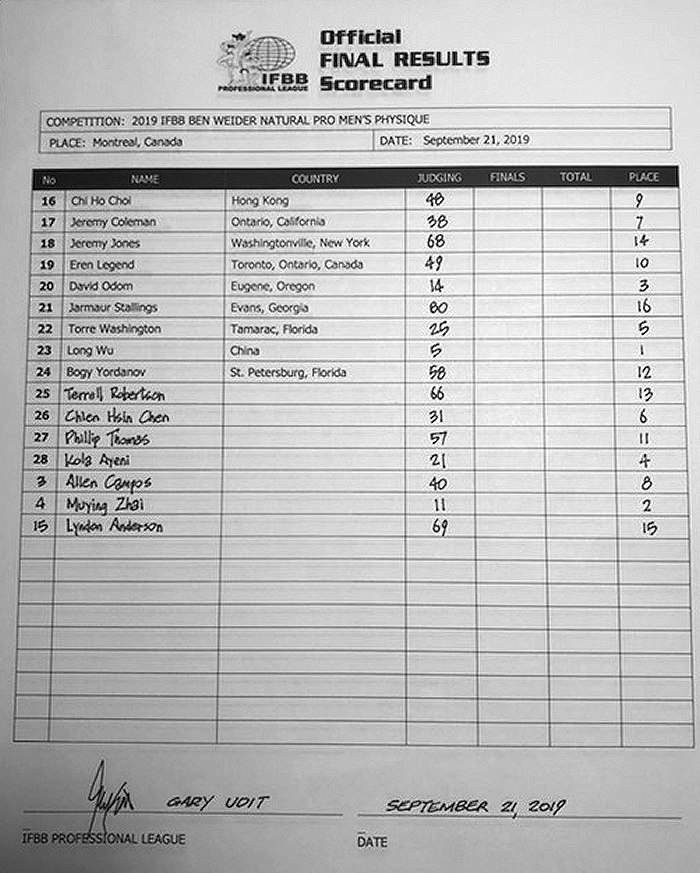 IFBB
PROFESSIONAL LEAGUE
Official
FINAL RESULTS
Scorecard
COMPETITION: 2019 IFBB BEN WEIDER NATURAL PRO MEN'S PHYSIQUE
PLACE: Montreal, Canada DATE: September 21, 2019
No NAME COUNTRY JUDGING FINALS TOTAL PLACE
16 Chi Ho Choi Hong Kong 48 9
17 Jeremy Coleman Ontario, California 38 7
18 Jeremy Jones Washingtonville, New York 68 14
19 Eren Legend Toronto, Ontario, Canada 49 10
20 David Odom Eugene, Oregon 14 3
21 Jarmaur Stallings Evans, Georgia 80 16
22 Torre Washington Tamarac, Florida 25 5
23 Long Wu China 5 1
24 Bogy Yordanov St. Petersburg, Florida 58 12
25 Terrell Robertson 66 13
26 Chien Hsin Chen 31 6
27 Phillip Thomas 57 11
28 Kola Ayeni 21 4
3 Allen Campos 40 8
4 Muying Zhai 11 2
15 Lyndon Anderson 69 15
GARY UDIT SEPTEMBER 21, 2019
IFBB PROFESSIONAL LEAGUE DATE